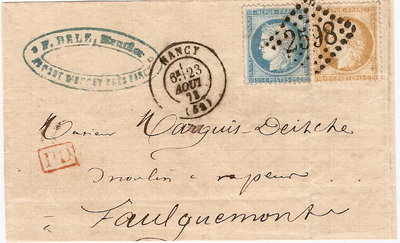 F. BELZ,
NANCY
6E 23
AOUT
73
(52)
REPUB. FRANC.
2598
Monsieur Marquis-Deitche
moulin à vapeur
Faulquemont
P.D.